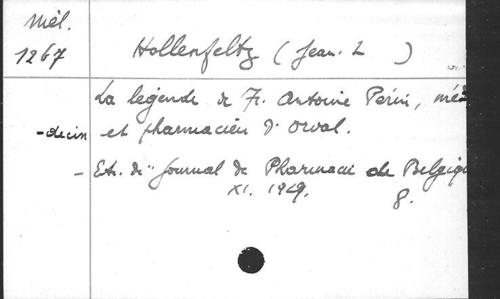 Mél.
1267
Hollenfeltz (Jean. L )
La légende de Fr. Antoine Périn, méd
-decin et pharmacien d'Orval.
- Ext. de "Journal de Pharmacie de Belgiqu
XI. 1929. 8.